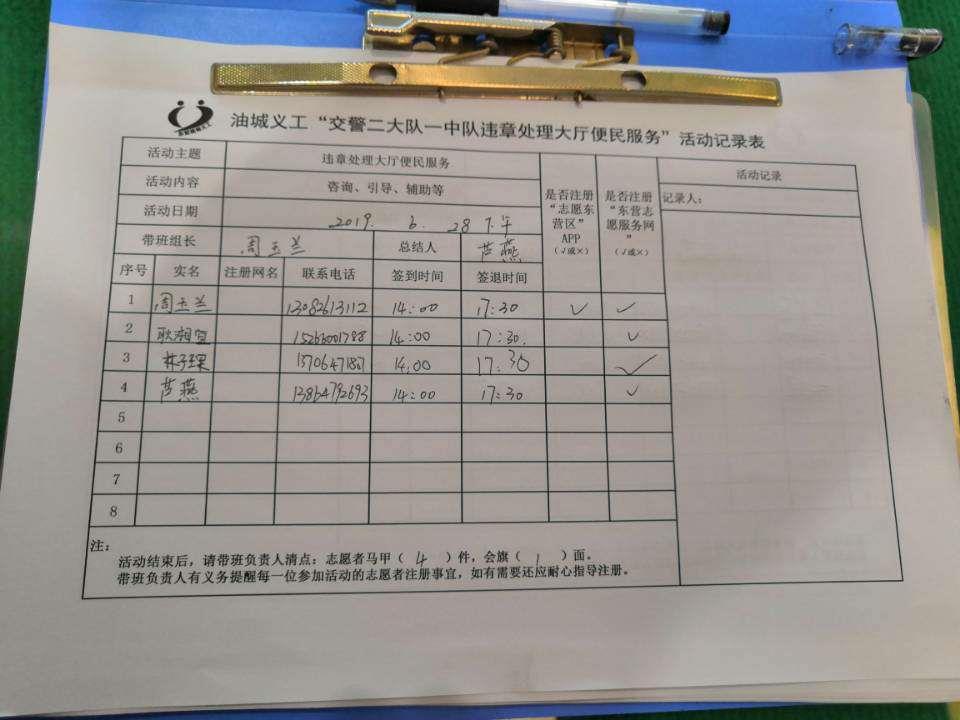 油城义工“交警二大队一中队违章处理大厅便民服务”活动记录表
活动主题 违章处理大厅便民服务
活动内容 咨询、引导、辅助等
活动日期 2019. 6. 28 下午
带班组长 周玉兰 总结人 芦燕
是否注册“志愿东营区”APP（√或×）
是否注册“东营志愿服务网”（√或×）
活动记录
记录人：
序号 实名 注册网名 联系电话 签到时间 签退时间
1 周玉兰 13082613112 14:00 17:30 ✓ ✓
2 耿湘宜 14:00 17:30. ✓
3 14.00 17:30 ✓
4 芦燕 13864792693 14:00 17:30 ✓
5
6
7
8
注：
活动结束后，请带班负责人清点：志愿者马甲（ 4 ）件，会旗（ 1 ）面。
带班负责人有义务提醒每一位参加活动的志愿者注册事宜，如有需要还应耐心指导注册。